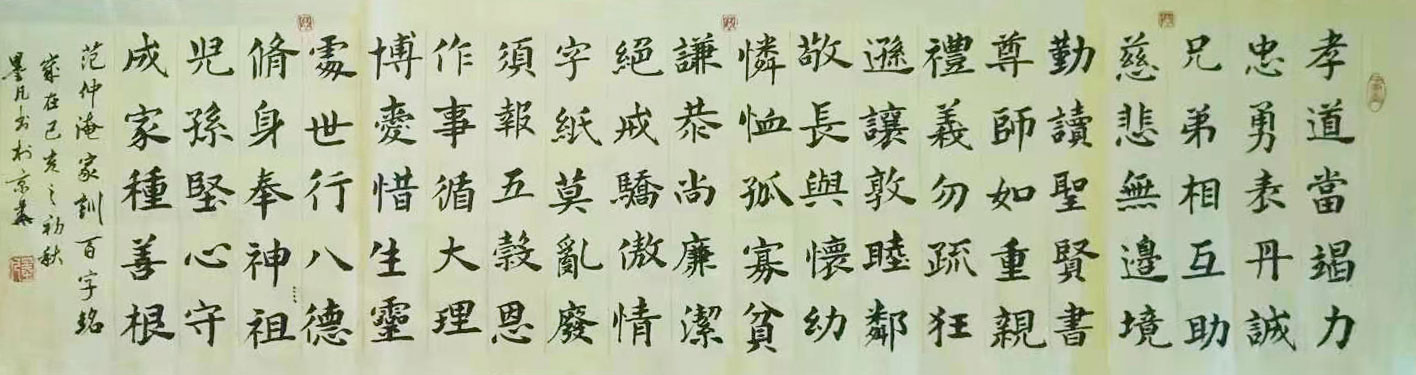 孝道當竭力
忠勇表丹誠
兄弟相互助
慈悲無邊境
勤讀聖賢書
尊師如重親
禮義勿疏狂
遜讓敦睦鄰
敬長與懷幼
憐恤孤寡貧
謙恭尚廉潔
絕戒驕傲情
字紙莫亂廢
須報五穀恩
作事循大理
博愛惜生靈
處世行八德
脩身奉神祖
兒孫堅心守
成家種善根
范仲淹家訓百字銘
歲在己亥之初秋
墨凡书於京華